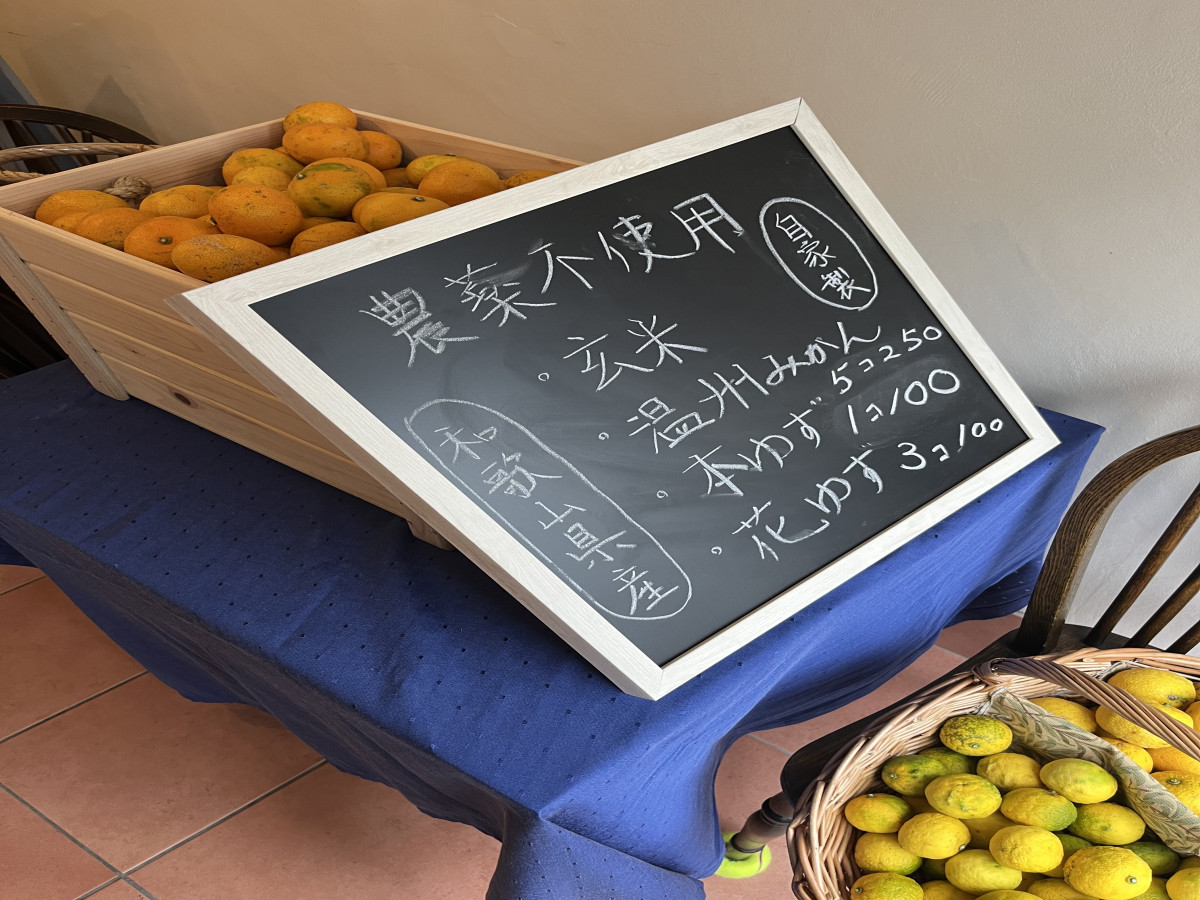 農薬不使用
自家製
・玄米
・温州みかん 5コ250
・本ゆず 1コ100
・花ゆず 3コ100
和歌山県産